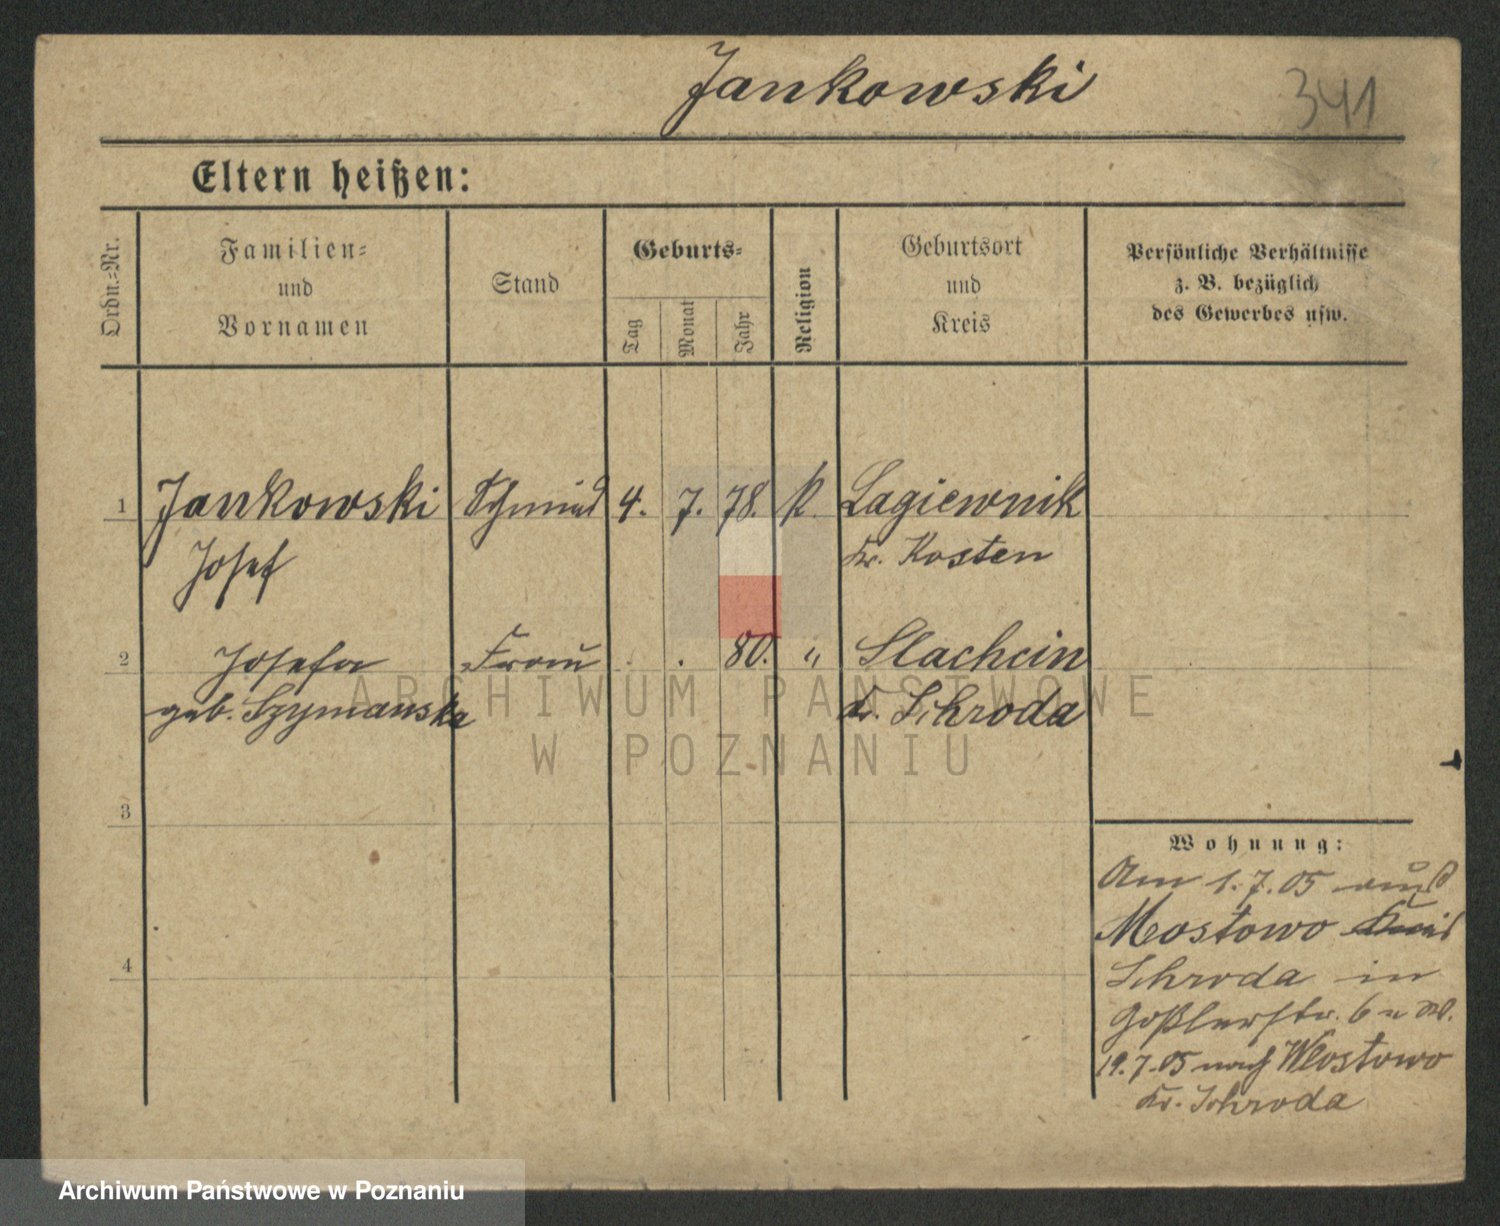 Jankowski
341
Eltern heißen:
Ordn.=Nr.
Familien=
und
Vornamen
Stand
Geburts=
Tag
Monat
Jahr
Religion
Geburtsort
und
Kreis
Persönliche Verhältnisse
z. B. bezüglich
des Gewerbes usw.
1 Jankowski Schmied 4. 7. 78. k. Lagiewnik
Josef Kr. Kosten
2 Josefa Frau . . 80. " Slachcin
geb. Szymanska Kr. Schroda
3
4
Wohnung:
Am 1.7.05 aus
Mostowo Kreis
Schroda in
Goßlerstr. 6
19.7.05 nach Wlostowo
Kr. Schroda
ARCHIWUM PAŃSTWOWE
W POZNANIU
Archiwum Państwowe w Poznaniu